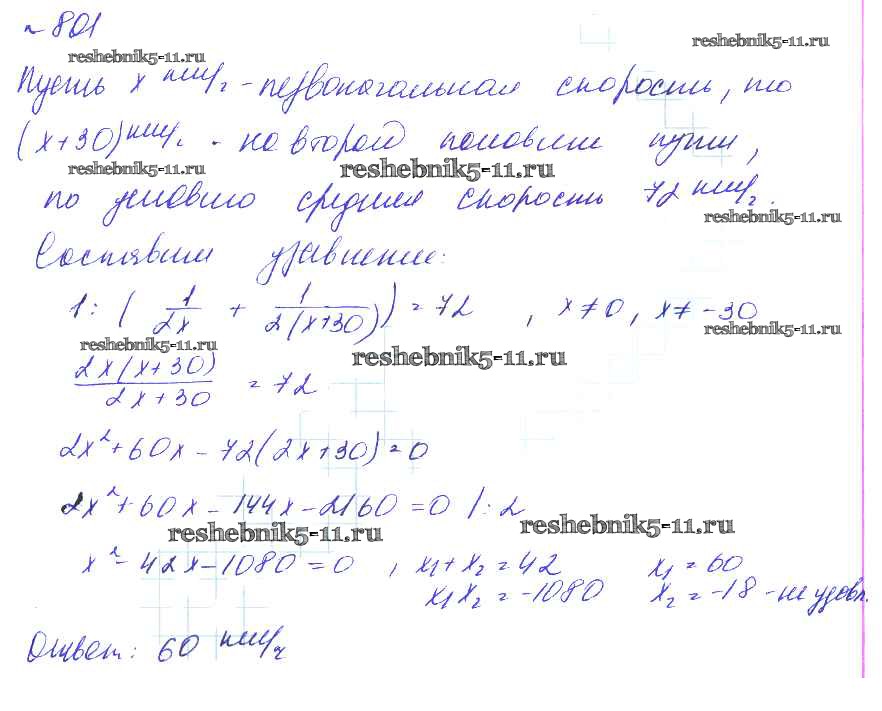 № 801
reshebnik5-11.ru reshebnik5-11.ru
Пусть x км/ч - первоначальная скорость, то
(x+30) км/ч - на второй половине пути,
reshebnik5-11.ru reshebnik5-11.ru
по условию средняя скорость 72 км/ч.
reshebnik5-11.ru
Составим уравнение:
1 : ( 1/2x + 1/2(x+30) ) = 72 , x ≠ 0, x ≠ -30
reshebnik5-11.ru
reshebnik5-11.ru reshebnik5-11.ru
2x(x+30)/2x+30 = 72
2x² + 60x - 72(2x+30) = 0
2x² + 60x - 144x - 2160 = 0 /:2
reshebnik5-11.ru reshebnik5-11.ru
x² - 42x - 1080 = 0 , x₁ + x₂ = 42 x₁ = 60
x₁x₂ = -1080 x₂ = -18 - не удовл.
Ответ: 60 км/ч